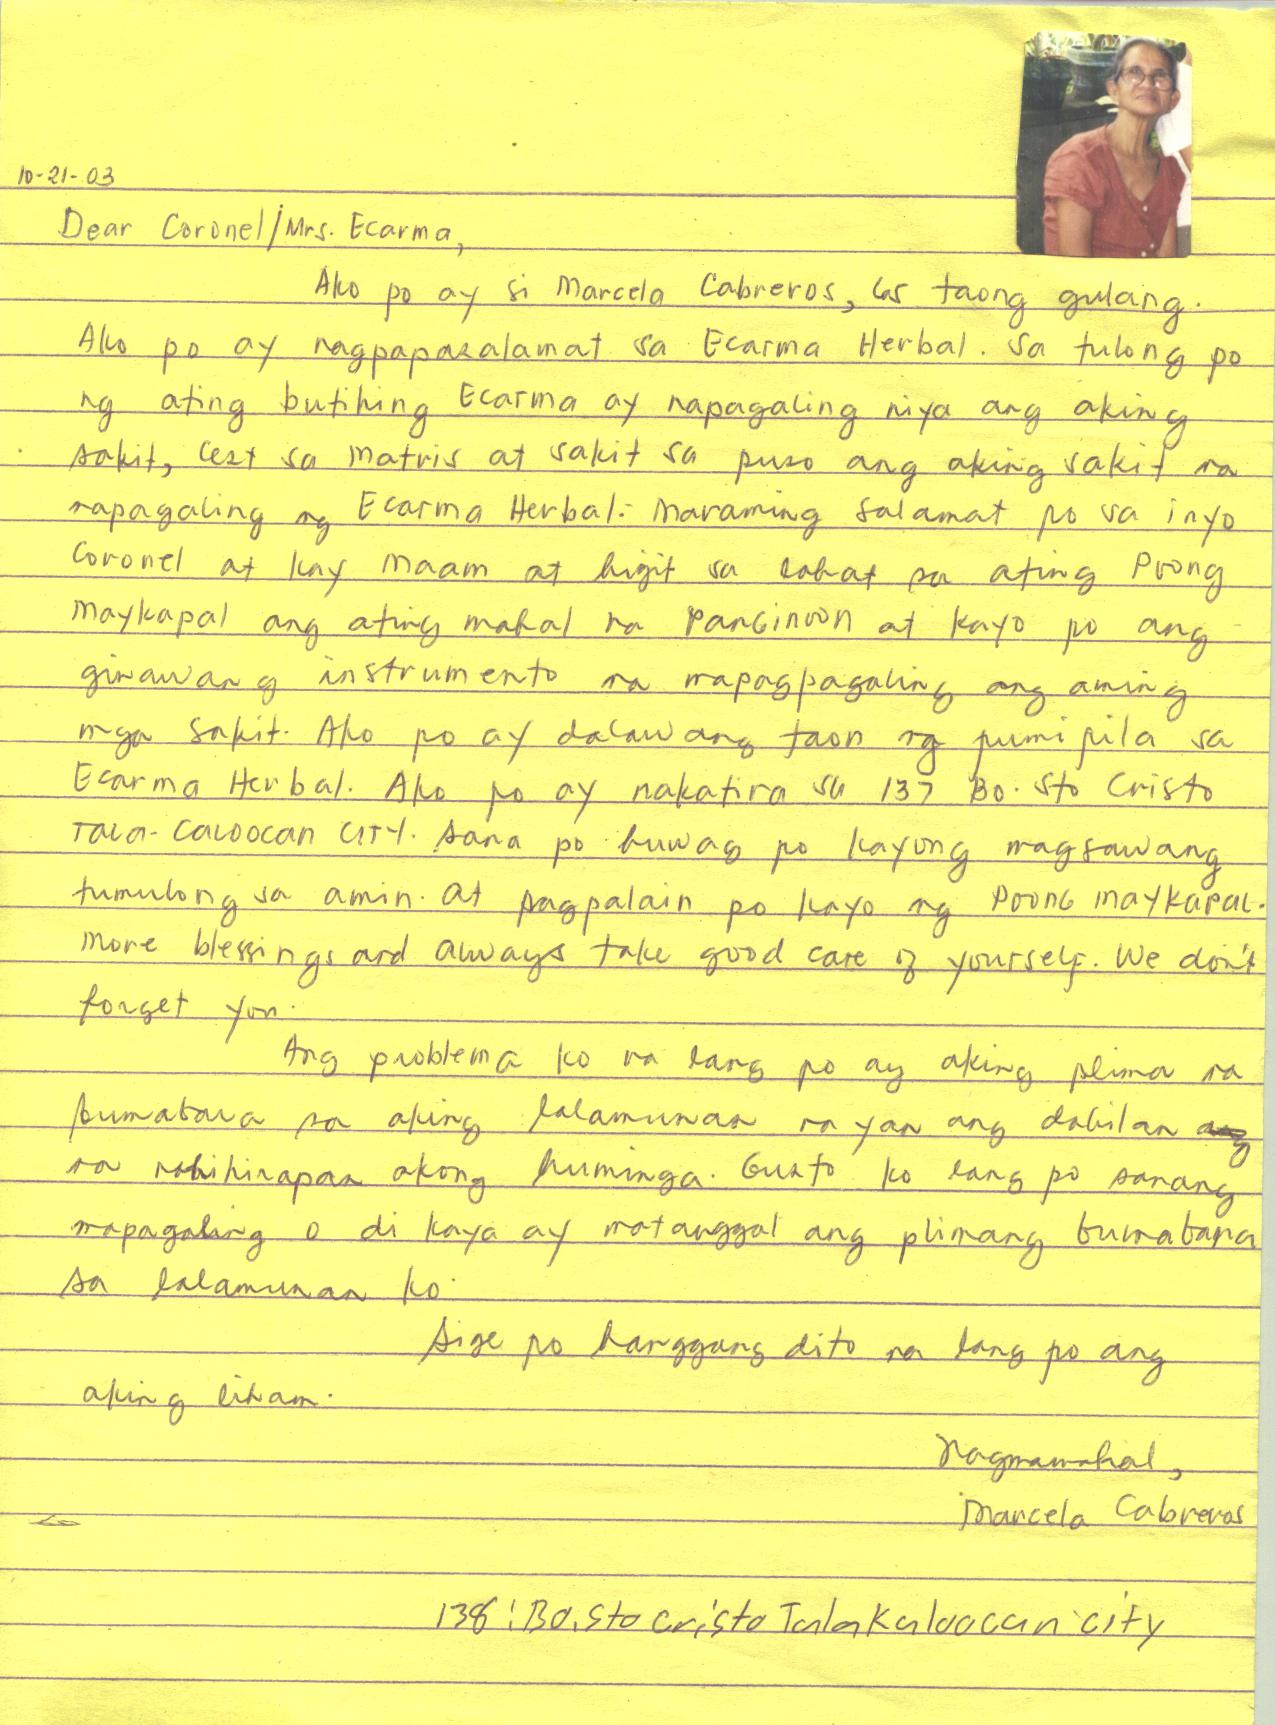 10-21-03
Dear Coronel/Mrs. Ecarma,
Ako po ay si Marcela Cabreros, 65 taong gulang.
Ako po ay nagpapasalamat sa Ecarma Herbal. Sa tulong po
ng ating butihing Ecarma ay napagaling niya ang aking
sakit, Cest sa matris at sakit sa puso ang aking sakit na
napagaling ng Ecarma Herbal. Maraming salamat po sa inyo
Coronel at kay Maam at higit sa lahat sa ating Poong
Maykapal ang ating mahal na PanGinoon at kayo po ang
ginawang instrumento na mapagpagaling ang aming
mga sakit. Ako po ay dalawang taon ng pumipila sa
Ecarma Herbal. Ako po ay nakatira sa 137 Bo. Sto Cristo
Tala-Caloocan City. Sana po huwag po kayong magsawang
tumulong sa amin. at pagpalain po kayo ng Poong Maykapal.
More blessings and always take good care of yourself. We don't
forget you.
Ang problema ko na lang po ay aking plima na
bumabara sa aking lalamunan na yan ang dahilan
na nahihirapan akong huminga. Gusto ko lang po sanang
mapagaling o di kaya ay matanggal ang plimang bumabara
sa lalamunan ko.
Sige po hanggang dito na lang po ang
aking liham.
Nagmamahal,
Marcela Cabreros
138 Bo. Sto Cristo Tala Kaloocan City